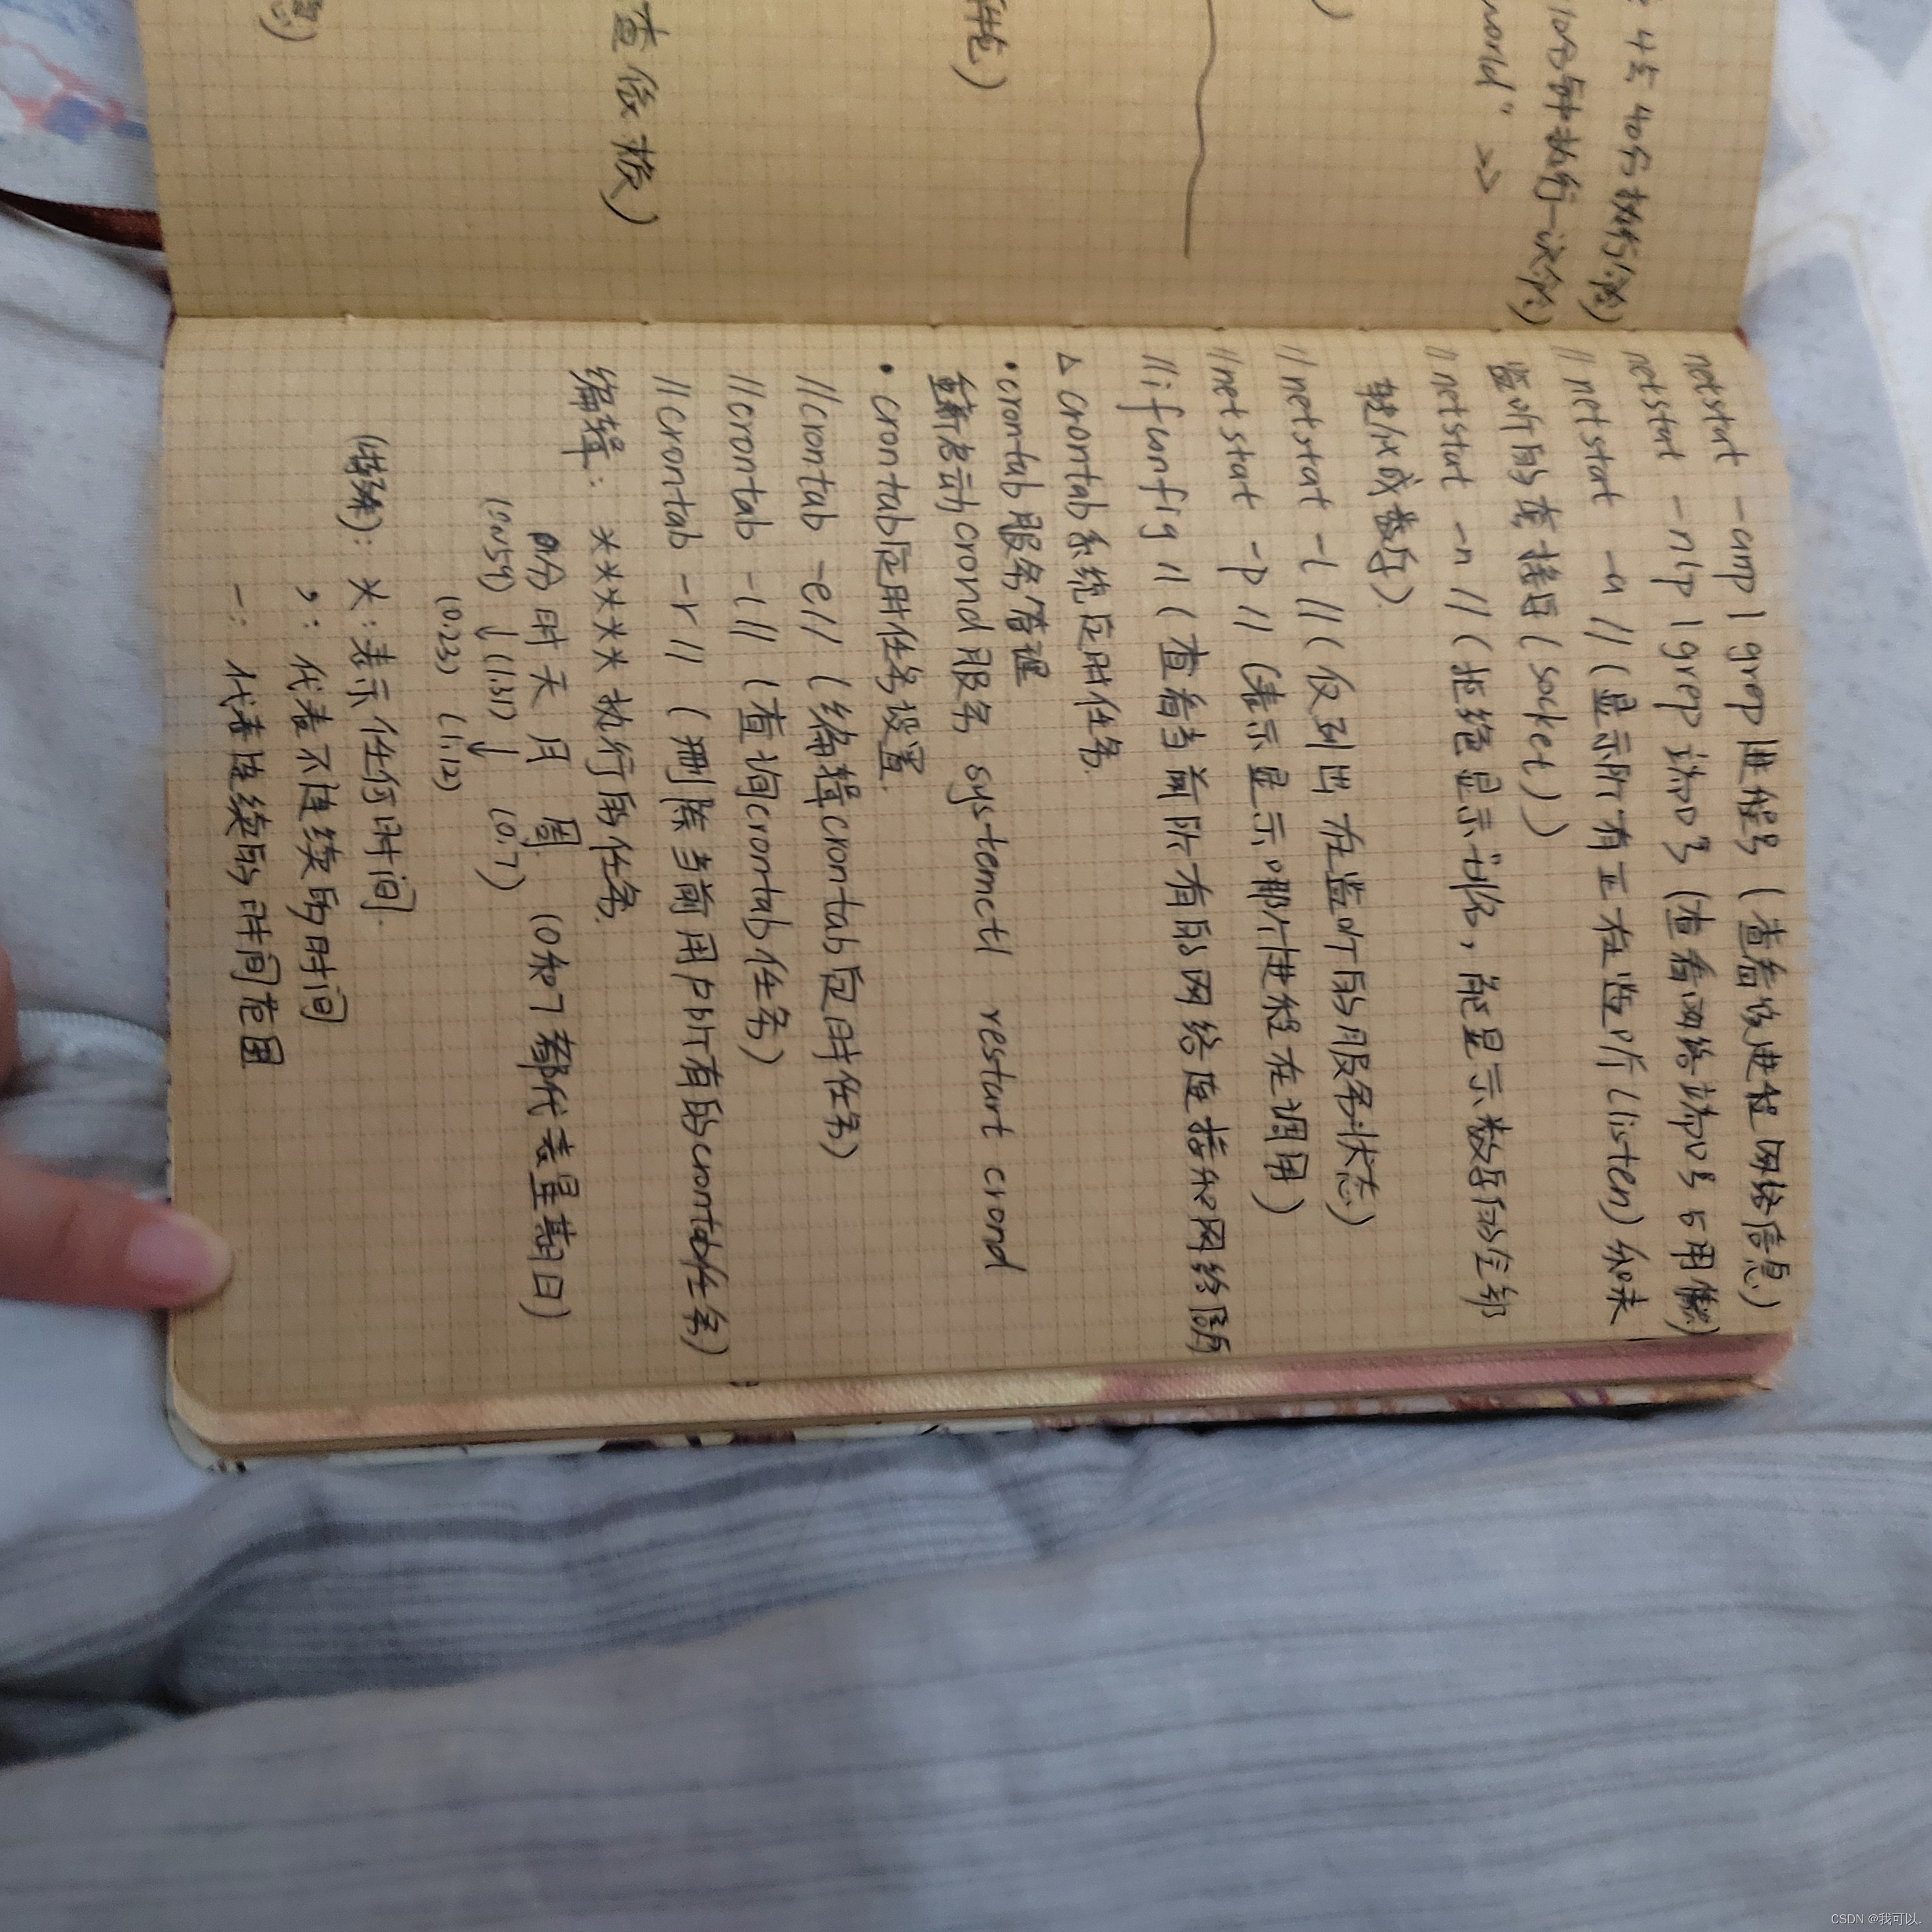 : 4点40分执行命令)
10分钟执行一次命令)
world" >>
)
查依赖)
netstat -anp | grep 进程号 (查看该进程网络信息)
netstat -nlp | grep 端口号 (查看网络端口号占用情况)
// netstat -a // (显示所有正在监听(listen)和未
监听的套接字(socket))
// netstat -n // (拒绝显示别名,能显示数字的全部
转化成数字)
// netstat -l // (仅列出在监听的服务状态)
// netstat -p // (表示显示哪个进程在调用)
// ifunfig // (查看当前所有的网络连接和网络
△ crontab系统定时任务.
• crontab服务管理
重新启动crond服务 systemctl restart crond
• crontab定时任务设置.
// crontab -e // (编辑crontab定时任务)
// crontab -l // (查询crontab任务)
// crontab -r // (删除当前用户所有的crontab任务)
编辑: * * * * * 执行的任务.
分 时 天 月 周. (0和7都代表星期日)
(0~59) ↓ (1.31) ↓ (0.7)
(0.23) (1.12)
(特殊): *: 表示任何时间.
,: 代表不连续的时间
-: 代表连续的时间范围
CSDN @我可以.